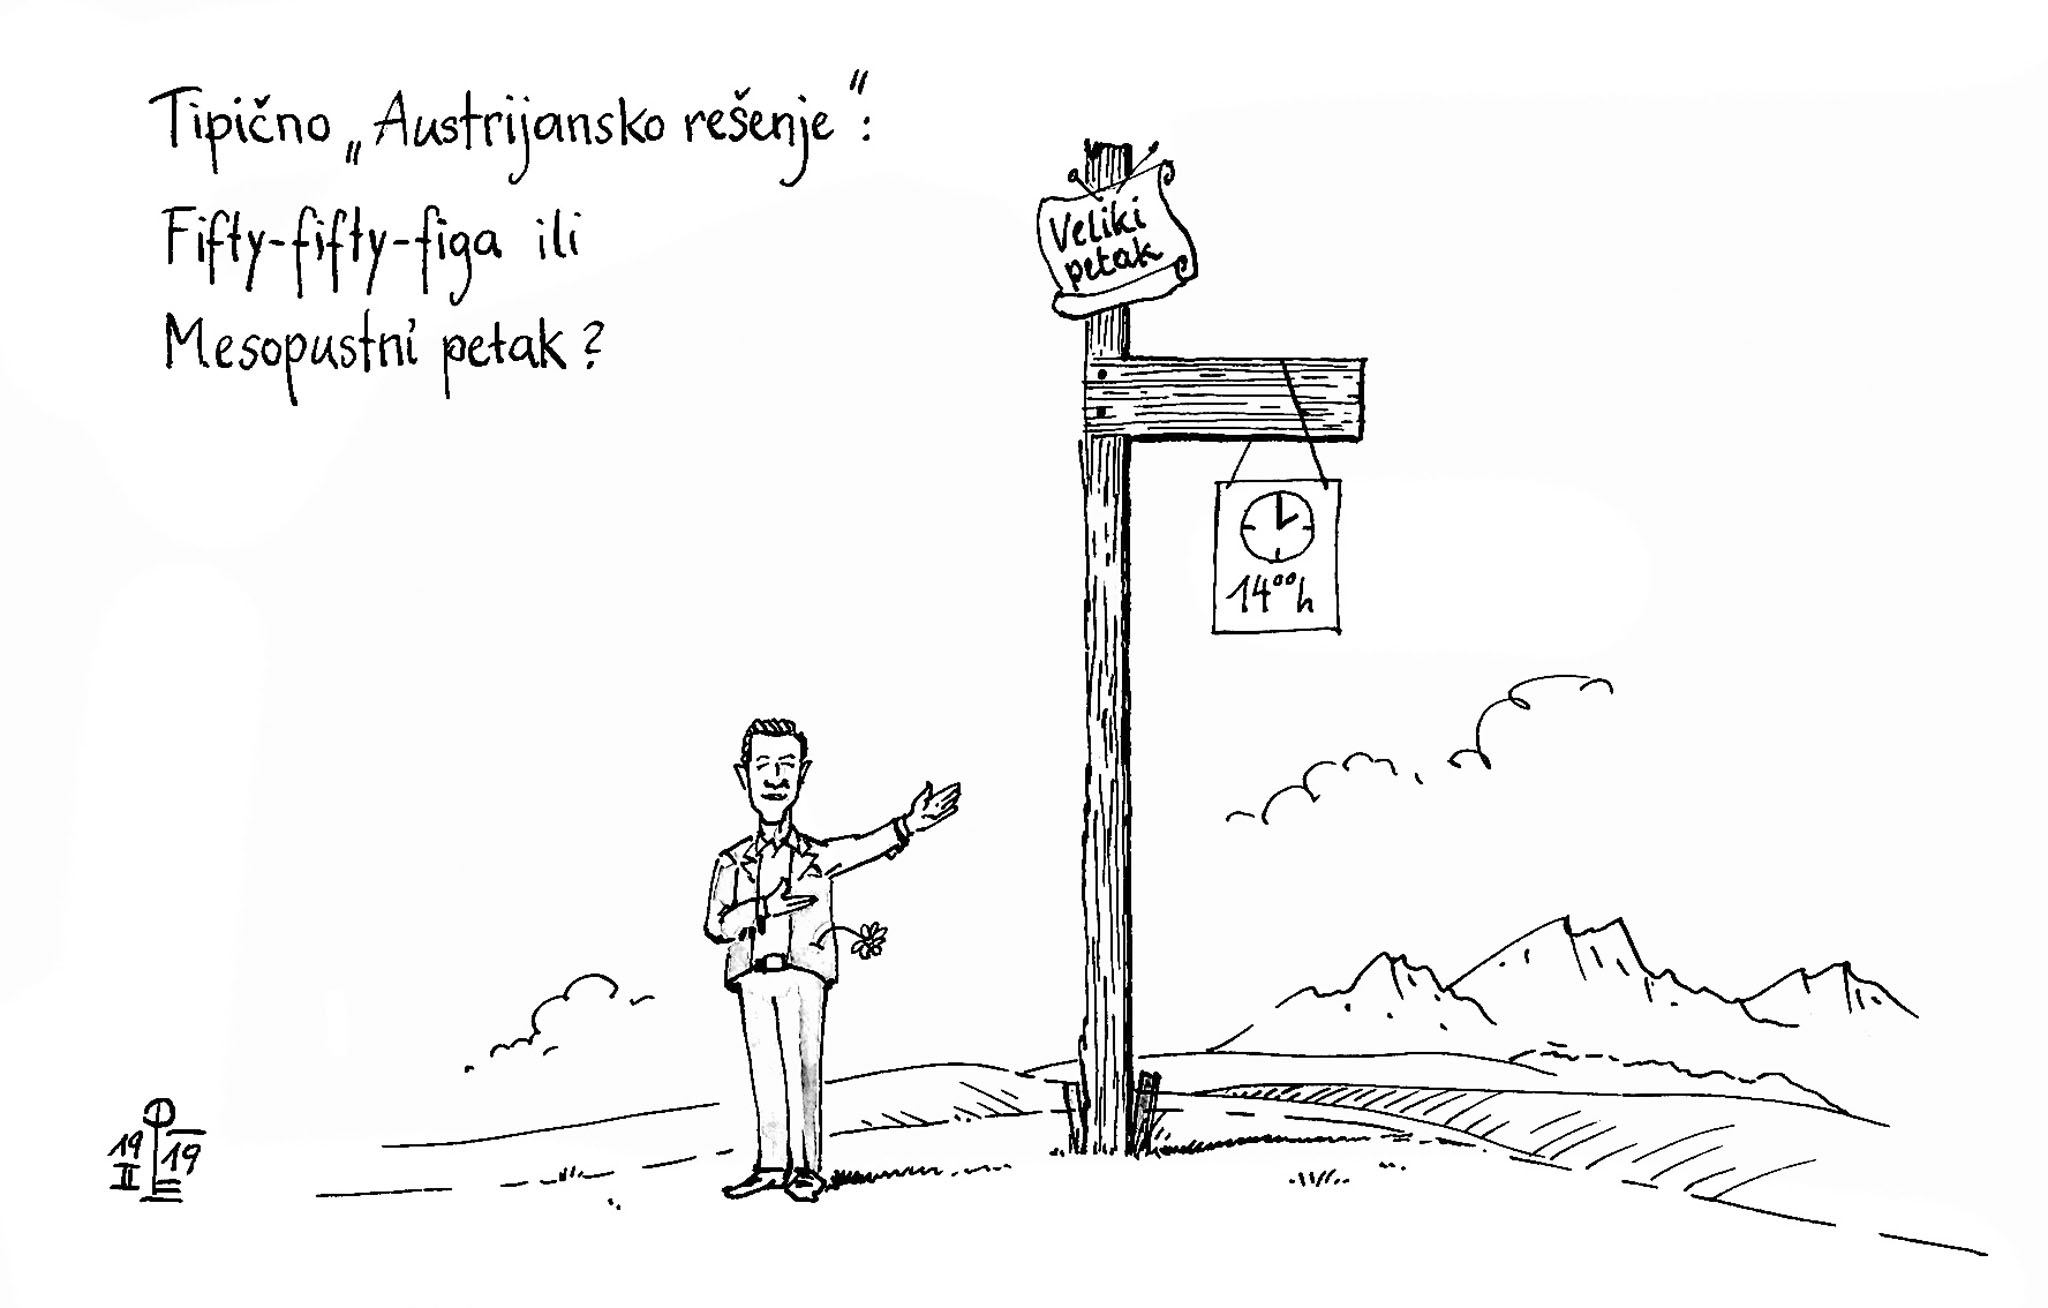 Tipično „Austrijansko rešenje“:
Fifty-fifty-figa ili
Mesopustni petak?
Veliki
petak
14⁰⁰h
19 19
II